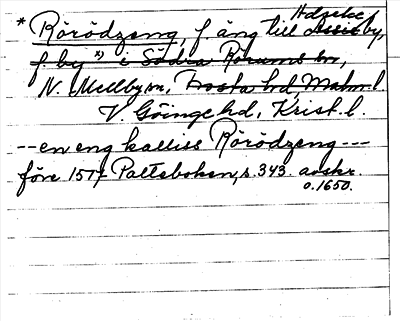 * Rörödzeng, f äng till Adzeke by,
f. by *) i Södra Rörums sn,
N. Mellby sn, Frosta hd Malm. l.
V. Göinge hd, Krist. l.
--- en eng kalliss Rörödzeng ---
före 1517 Palteboken, s. 343. avskr.
o. 1650.